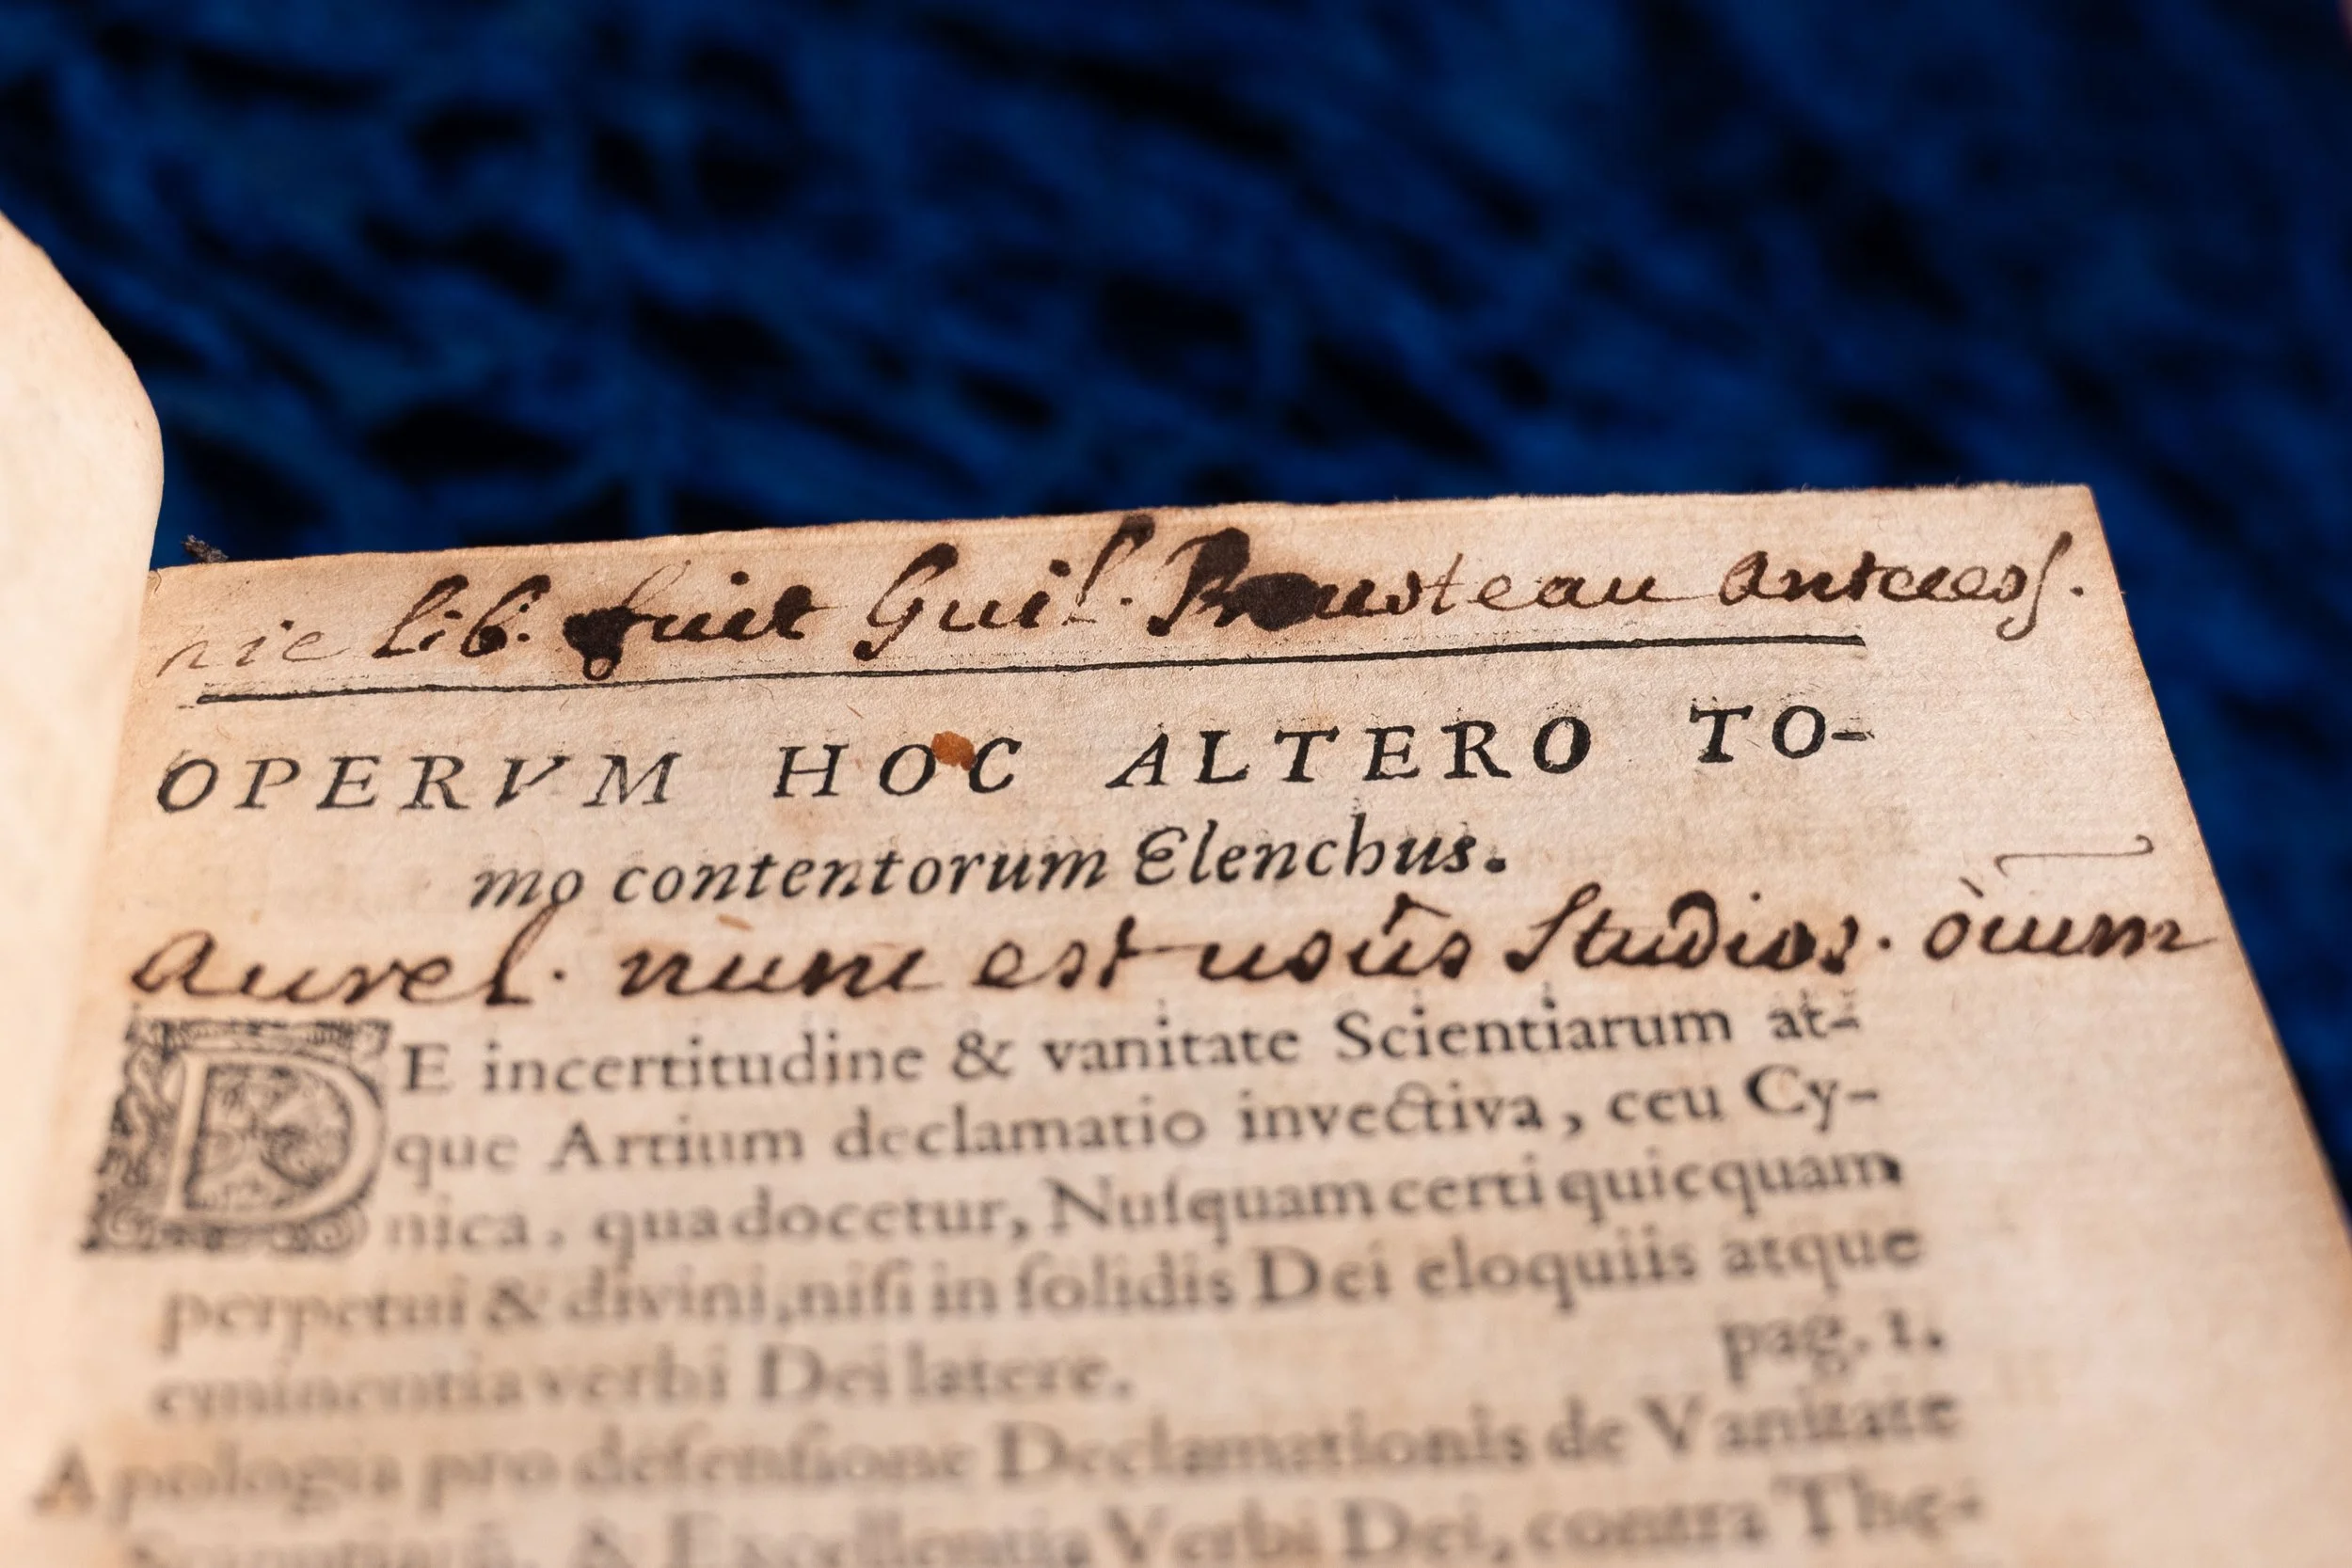 hic lib. fuit Guil. Prousteau antecess.
OPERVM HOC ALTERO TO-
mo contentorum Elenchus.
Aurel. nunc est usûs Studios. òium
DE incertitudine & vanitate Scientiarum at-
que Artium declamatio invectiva, ceu Cy-
nica, qua docetur, Nuſquam certi quicquam
perpetui & divini, niſi in ſolidis Dei eloquiis atque
eminentia verbi Dei latere.
pag. 1.
Apologia pro defenſione Declamationis de Vanitate
Scientiarū, & Excellentia Verbi Dei, contra The-